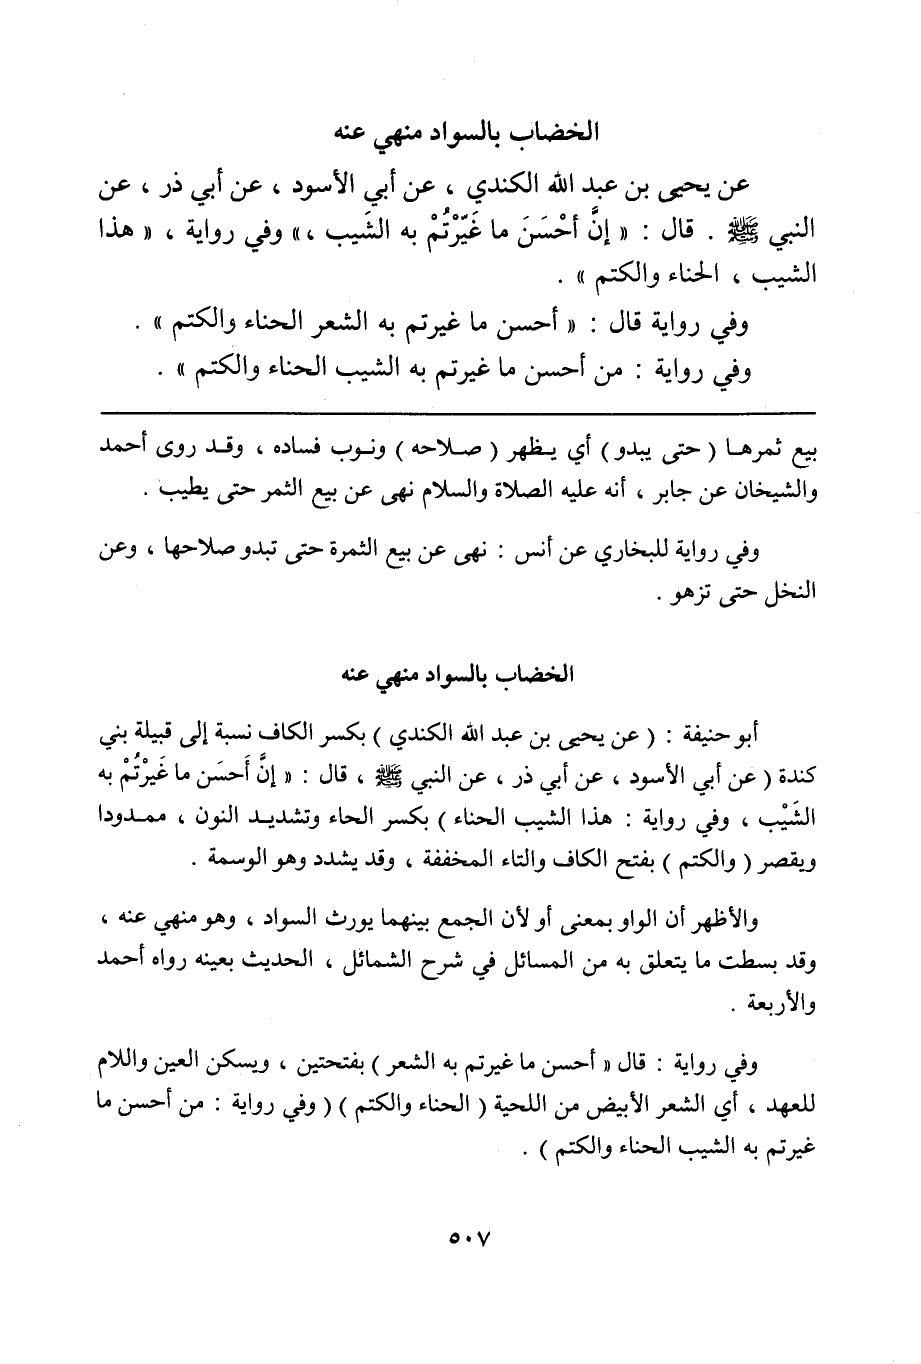 الخضاب بالسواد منهي عنه
عن يحيى بن عبد الله الكندي ، عن أبي الأسود ، عن أبي ذر ، عن
النبي ﷺ . قال : « إنَّ أحْسَنَ ما غَيّرْتُمْ به الشَيب ،» وفي رواية ، « هذا
الشيب ، الحناء والكتم » .
وفي رواية قال : « أحسن ما غيرتم به الشعر الحناء والكتم » .
وفي رواية : من أحسن ما غيرتم به الشيب الحناء والكتم » .
بيع ثمرهـا ( حتى يبدو ) أي يـظهر ( صـلاحه ) ونـوب فساده ، وقـد روى أحمد
والشيخان عن جابر ، أنه عليه الصلاة والسلام نهى عن بيع الثمر حتى يطيب .
وفي رواية للبخاري عن أنس : نهى عن بيع الثمرة حتى تبدو صلاحها ، وعن
النخل حتى تزهو .
الخضاب بالسواد منهي عنه
أبو حنيفة : ( عن يحيى بن عبد الله الكندي ) بكسر الكاف نسبة إلى قبيلة بني
كندة ( عن أبي الأسود ، عن أبي ذر ، عن النبي ﷺ ، قال : « إنَّ أَحسَن ما غَيرْتُمْ به
الشَيْب ، وفي رواية : هذا الشيب الحناء ) بكسر الحاء وتشديـد النون ، ممـدودا
ويقصر ( والكتم ) بفتح الكاف والتاء المخففة ، وقد يشدد وهو الوسمة .
والأظهر أن الواو بمعنى أو لأن الجمع بينهما يورث السواد ، وهو منهي عنه ،
وقد بسطت ما يتعلق به من المسائل في شرح الشمائل ، الحديث بعينه رواه أحمد
والأربعة .
وفي رواية : قال « أحسن ما غيرتم به الشعر ) بفتحتين ، ويسكن العين واللام
للعهد ، أي الشعر الأبيض من اللحية ( الحناء والكتم ) ( وفي رواية : من أحسن ما
غيرتم به الشيب الحناء والكتم ) .
٥٠٧